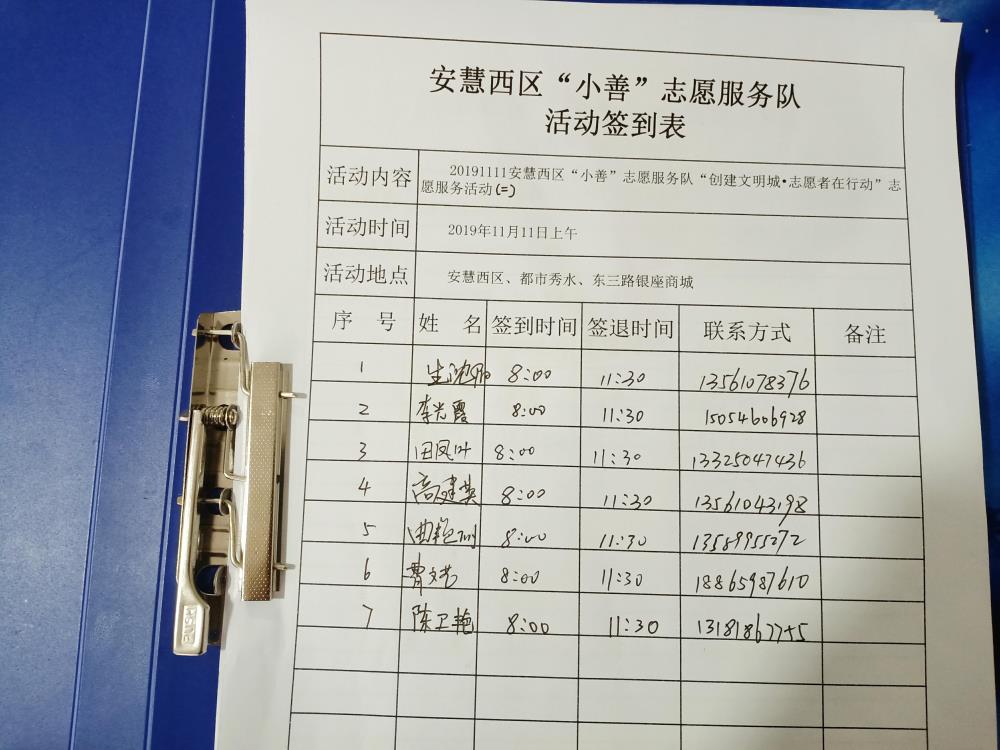 安慧西区“小善”志愿服务队
活动签到表
活动内容 20191111安慧西区“小善”志愿服务队“创建文明城•志愿者在行动”志
愿服务活动(=)
活动时间 2019年11月11日上午
活动地点 安慧西区、都市秀水、东三路银座商城
序 号 姓 名 签到时间 签退时间 联系方式 备注
1 8:00 11:30 13561078376
2 李光霞 8:00 11:30 15054606928
3 田凤叶 8:00 11:30 13325047436
4 高建英 8:00 11:30 13561043198
5 8:00 11:30 13589955272
6 曹文芳 8:00 11:30 18865987610
7 陈卫艳 8:00 11:30 13181867745
HSNB